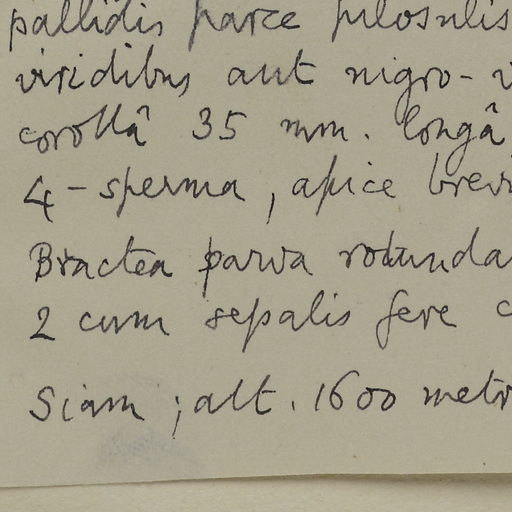 pallidis parce pilosulis
viridibus aut nigro-v
corollâ 35 mm. longâ
4-sperma, apice brevi
Bractea parva rotunda
2 cum sepalis fere c
Siam; alt. 1600 metr